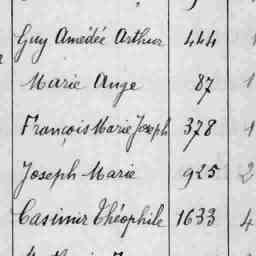 Guy Amédée Arthur 444 1
Marie Ange 87 1
François Marie Joseph 378 1
Joseph Marie 925 2
Casimir Théophile 1633 4